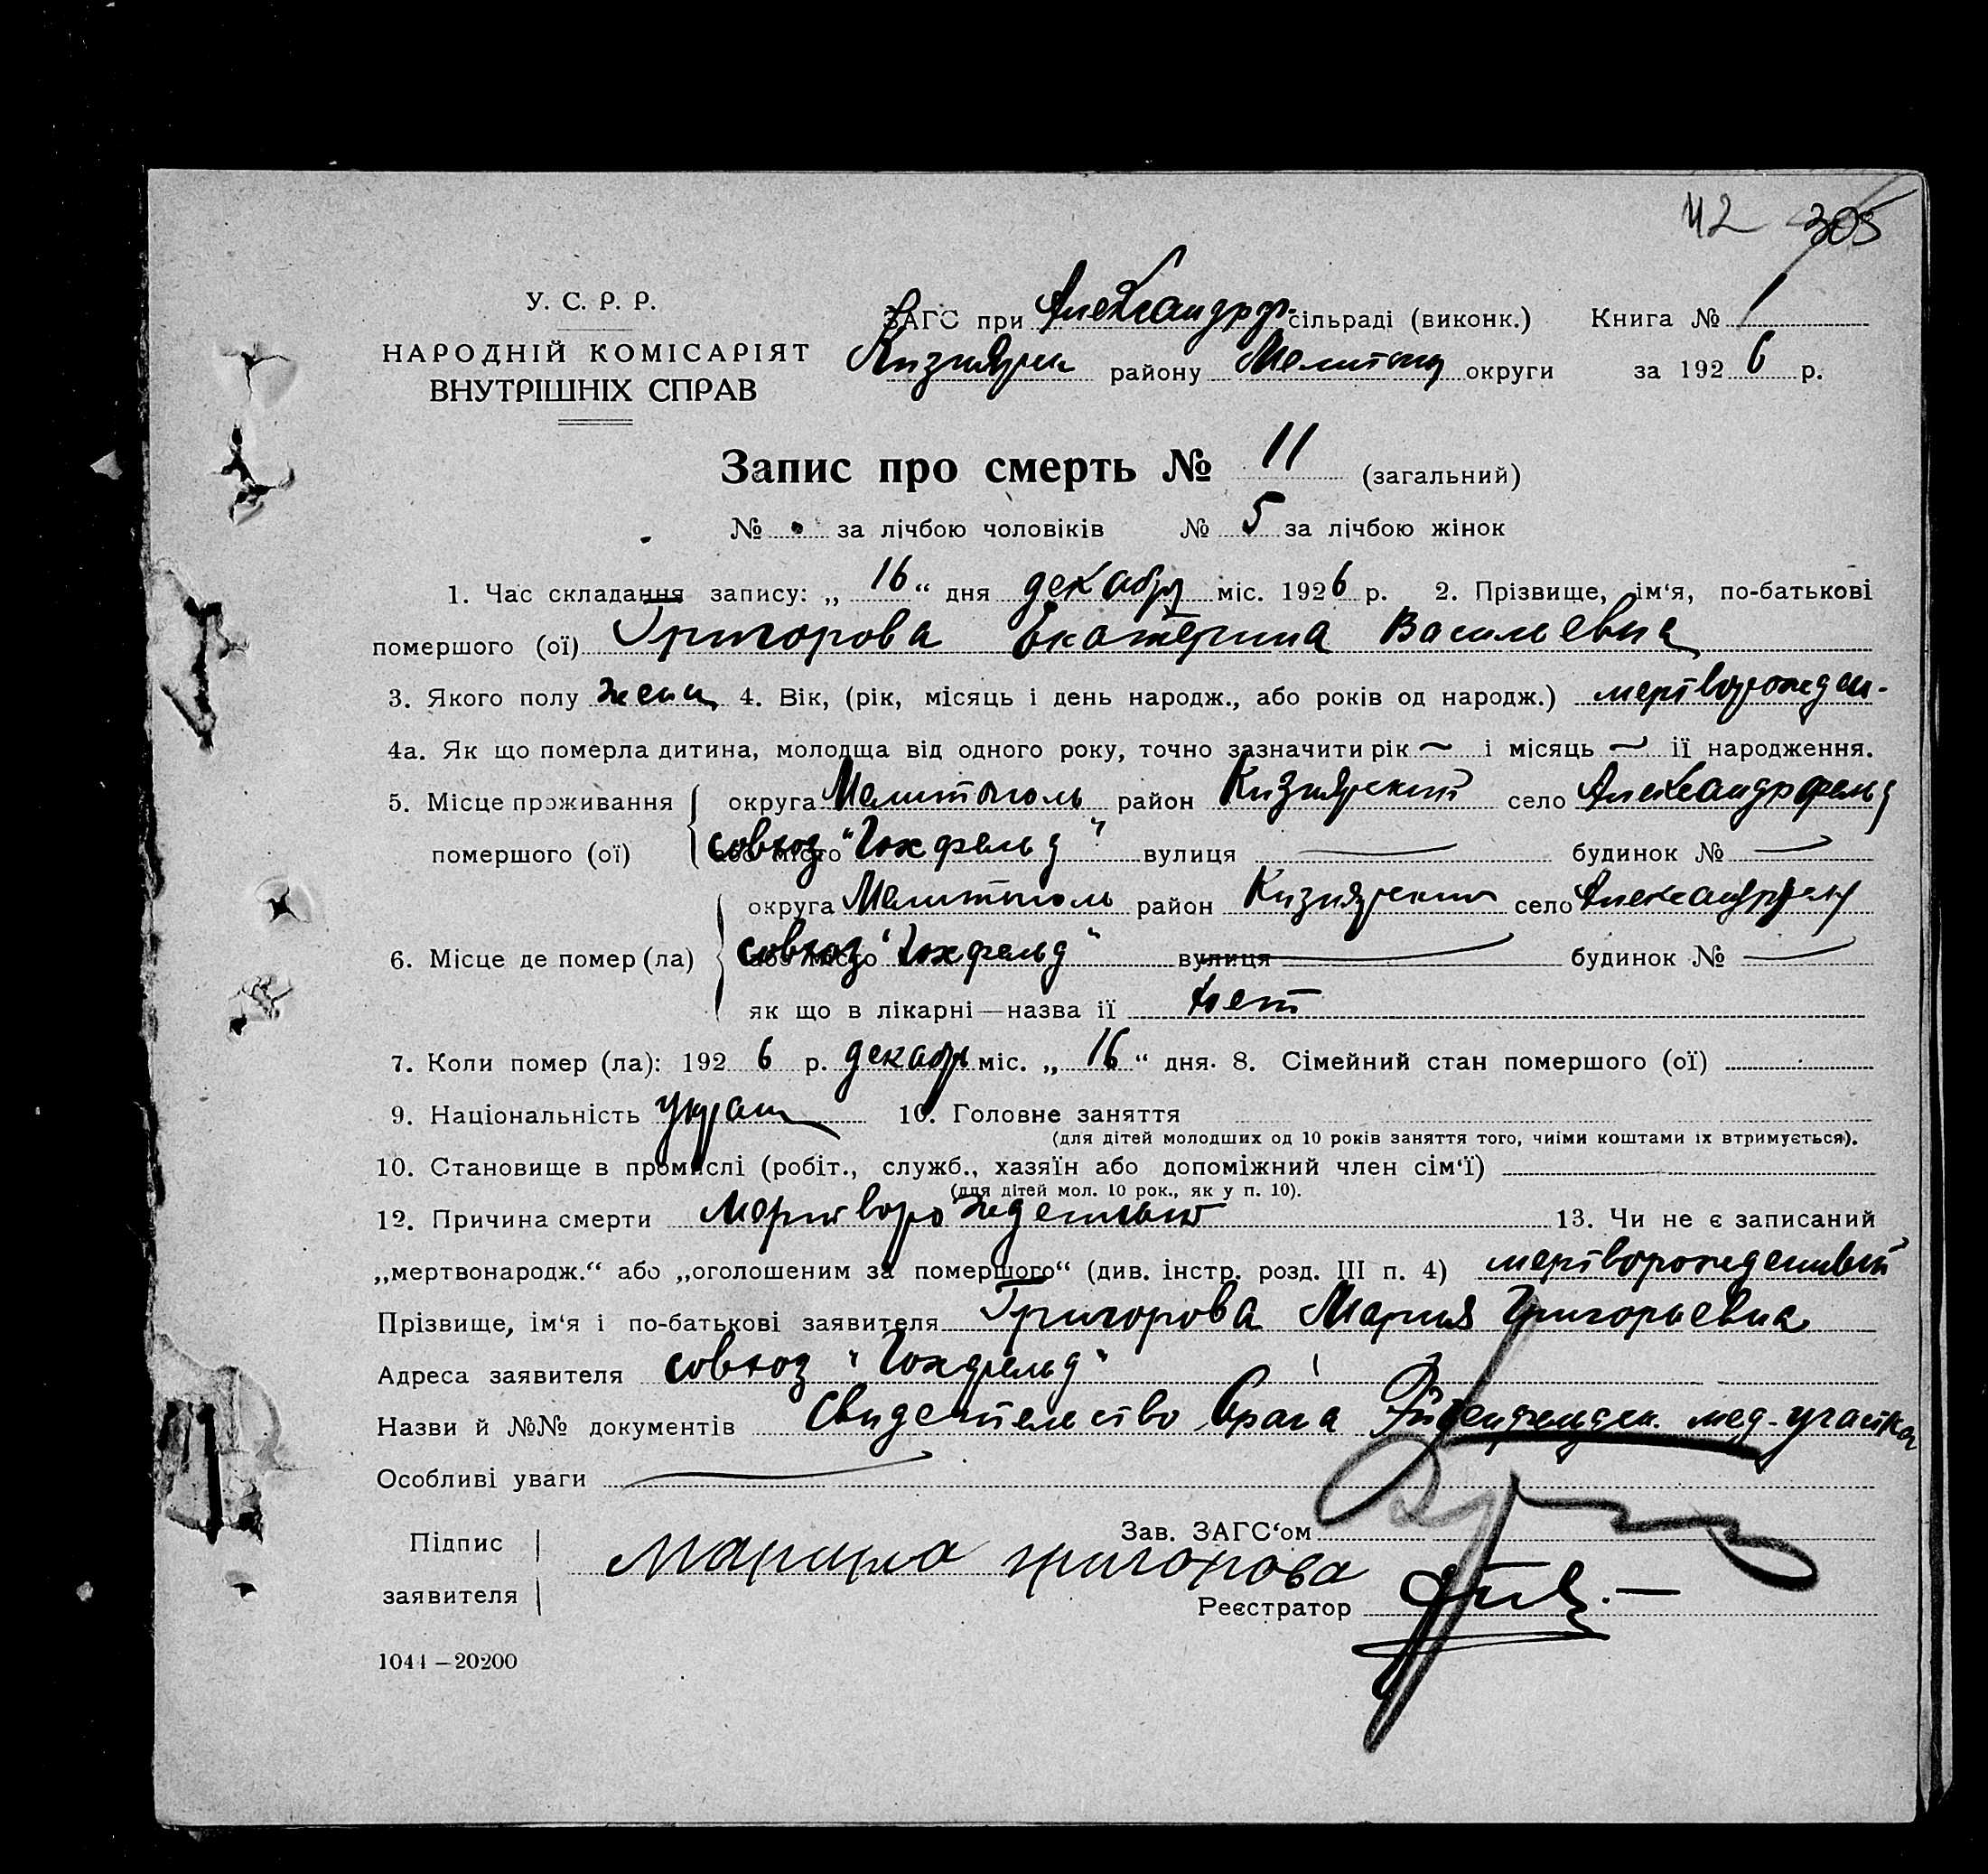 42 305
У. С. Р. Р.
НАРОДНІЙ КОМІСАРІЯТ
ВНУТРІШНІХ СПРАВ
ЗАГС при Александрф. сільраді (виконк.) Книга № 1
Кизиярск району Мелитоп округи за 1926 р.
Запис про смерть № 11 (загальний)
№ за лічбою чоловіків № 5 за лічбою жінок
1. Час складання запису: „16“ дня декабря міс. 1926 р. 2. Прізвище, ім‘я, по-батькові
помершого (ої) Григорова Екатерина Васильевна
3. Якого полу женск 4. Вік, (рік, місяць і день народж., або років од народж.) мертворожден-
4а. Як що померла дитина, молодща від одного року, точно зазначити рік ~ і місяць ~ її народження.
5. Місце проживання округа Мелитополь район Кизиярский село Александрфельд
помершого (ої) або місто совхоз "Гохфельд" вулиця — будинок № —
округа Мелитополь район Кизиярский село Александрфельд
6. Місце де помер (ла) або місто совхоз "Гохфельд" вулиця — будинок № —
як що в лікарні—назва її нет
7. Коли помер (ла): 1926 р. декабрь міс. „16“ дня. 8. Сімейний стан помершого (ої)
9. Національність украин 10. Головне заняття
(для дітей молодших од 10 років заняття того, чиїми коштами їх втримується).
10. Становище в промислі (робіт., служб., хазяїн або допоміжний член сім‘ї)
(для дітей мол. 10 рок., як у п. 10).
12. Причина смерти Мертворожденный 13. Чи не є записаний
„мертвонародж.“ або „оголошеним за померщого“ (див. інстр. розд. III п. 4) мертворожденный
Прізвище, ім‘я і по-батькові заявителя Григорова Мария Григорьевна
Адреса заявителя совхоз "Гохфельд"
Назви й №№ документів Свидетельство врача мед-участка
Особливі уваги —
Підпис Зав. ЗАГС‘ом
Марыya григорова
заявителя Реєстратор
1044—20200